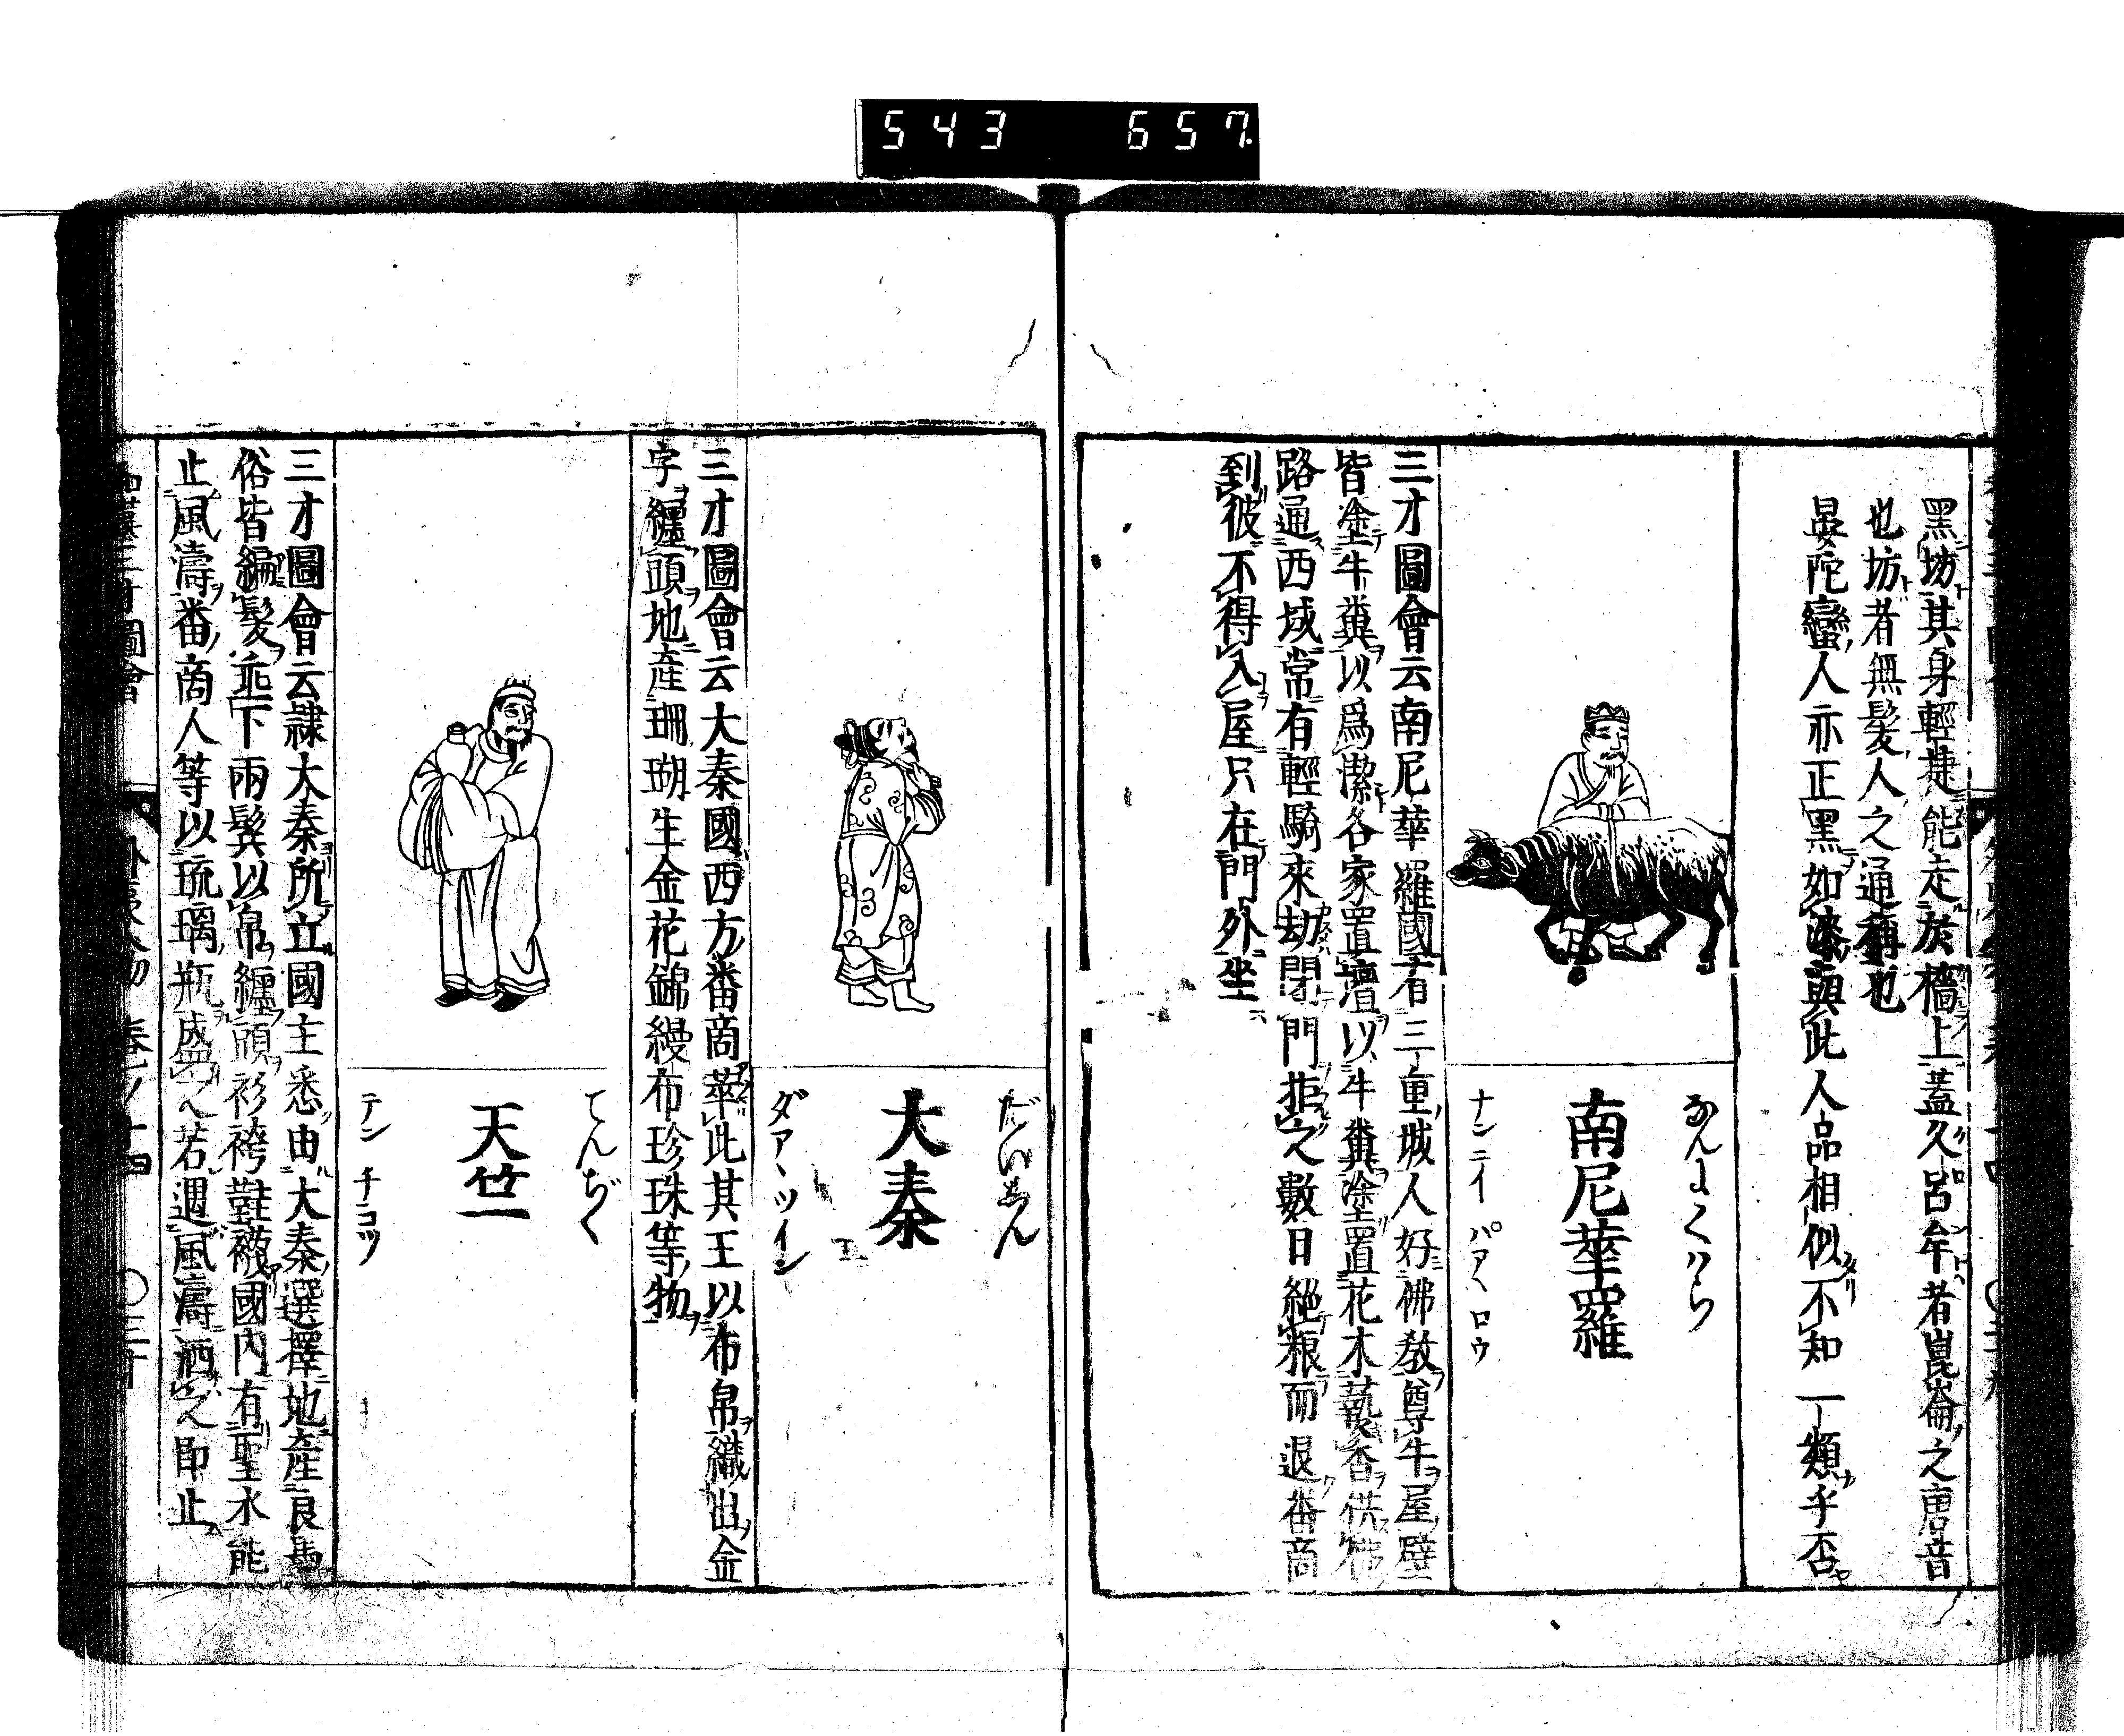 543 657.
黑坊其身輕捷能走於檣上蓋久呂牟者崑崙之唐音
也坊者無髪人之通稱也
晏陀蠻人亦正黑如漆與此人品相似不知一類乎否
なんにくわら
南尼華羅
ナンニイパアヽロウ
三才圖會云南尼華羅國有三重城人好佛教尊牛屋壁
皆塗牛糞以爲潔各家置壇以牛糞塗置花木蓺香供佛
路通西域常有輕騎來劫閉門拒之數日絕粮而退番商
到彼不得入屋只在門外坐
だいしん
大秦
ダアヽツイン
三才圖會云大秦國西方番商萃此其王以布帛織出金
字纏頭地產珊瑚生金花錦縵布珍珠等物
てんぢく
天竺
テンチヨツ
三才圖會云隷大秦所立國主悉由大秦選擇地產良馬
俗皆編髮垂下兩鬂以帛纏頭衫袴鞋襪國内有聖水能
止風濤番商人等以琉璃瓶盛之若遇風濤洒之即止